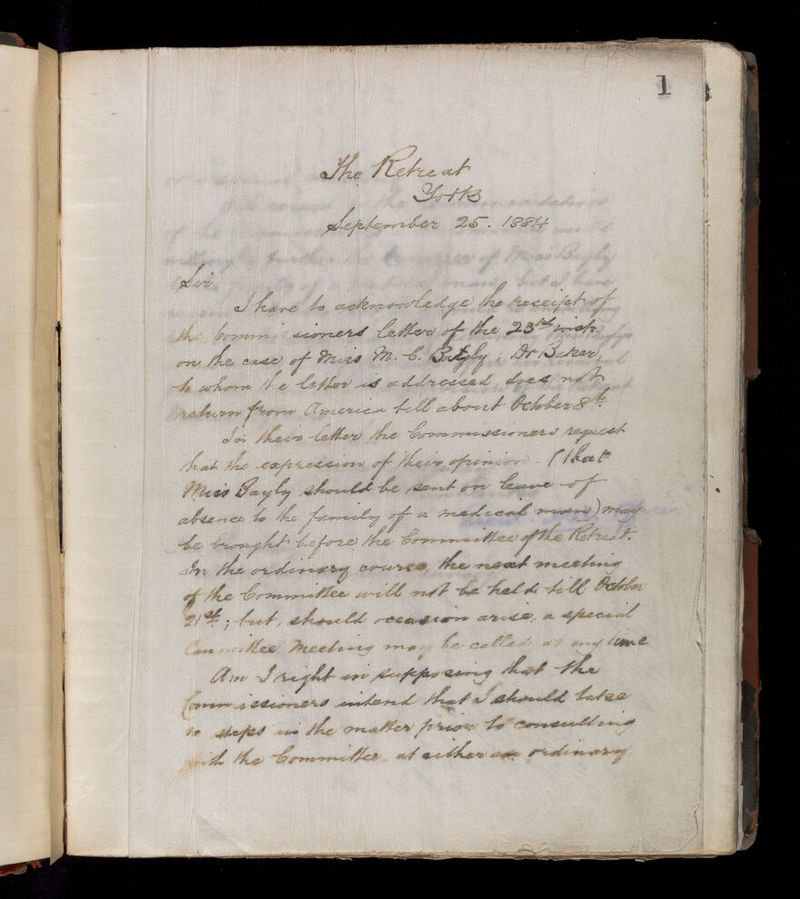 1
The Retreat
York
September 25. 1884
Sir
I have to acknowledge the receipt of
the Commissioners letter of the 23rd inst.
on the case of Miss M. C. Bayly; Dr Baker,
to whom the letter is addressed, does not
return from America till about October 8th.
In their letter the Commissioners request
that the expression of their opinion - (that
Miss Bayly should be sent on leave of
absence to the family of a medical man) may
be brought before the Committee of the Retreat.
In the ordinary course, the next meeting
of the Committee will not be held till October
21st; but, should occasion arise, a special
Committee Meeting may be called at any time
Am I right in supposing that the
Commissioners intend that I should take
no steps in the matter prior to consulting
with the Committee, at either an ordinary